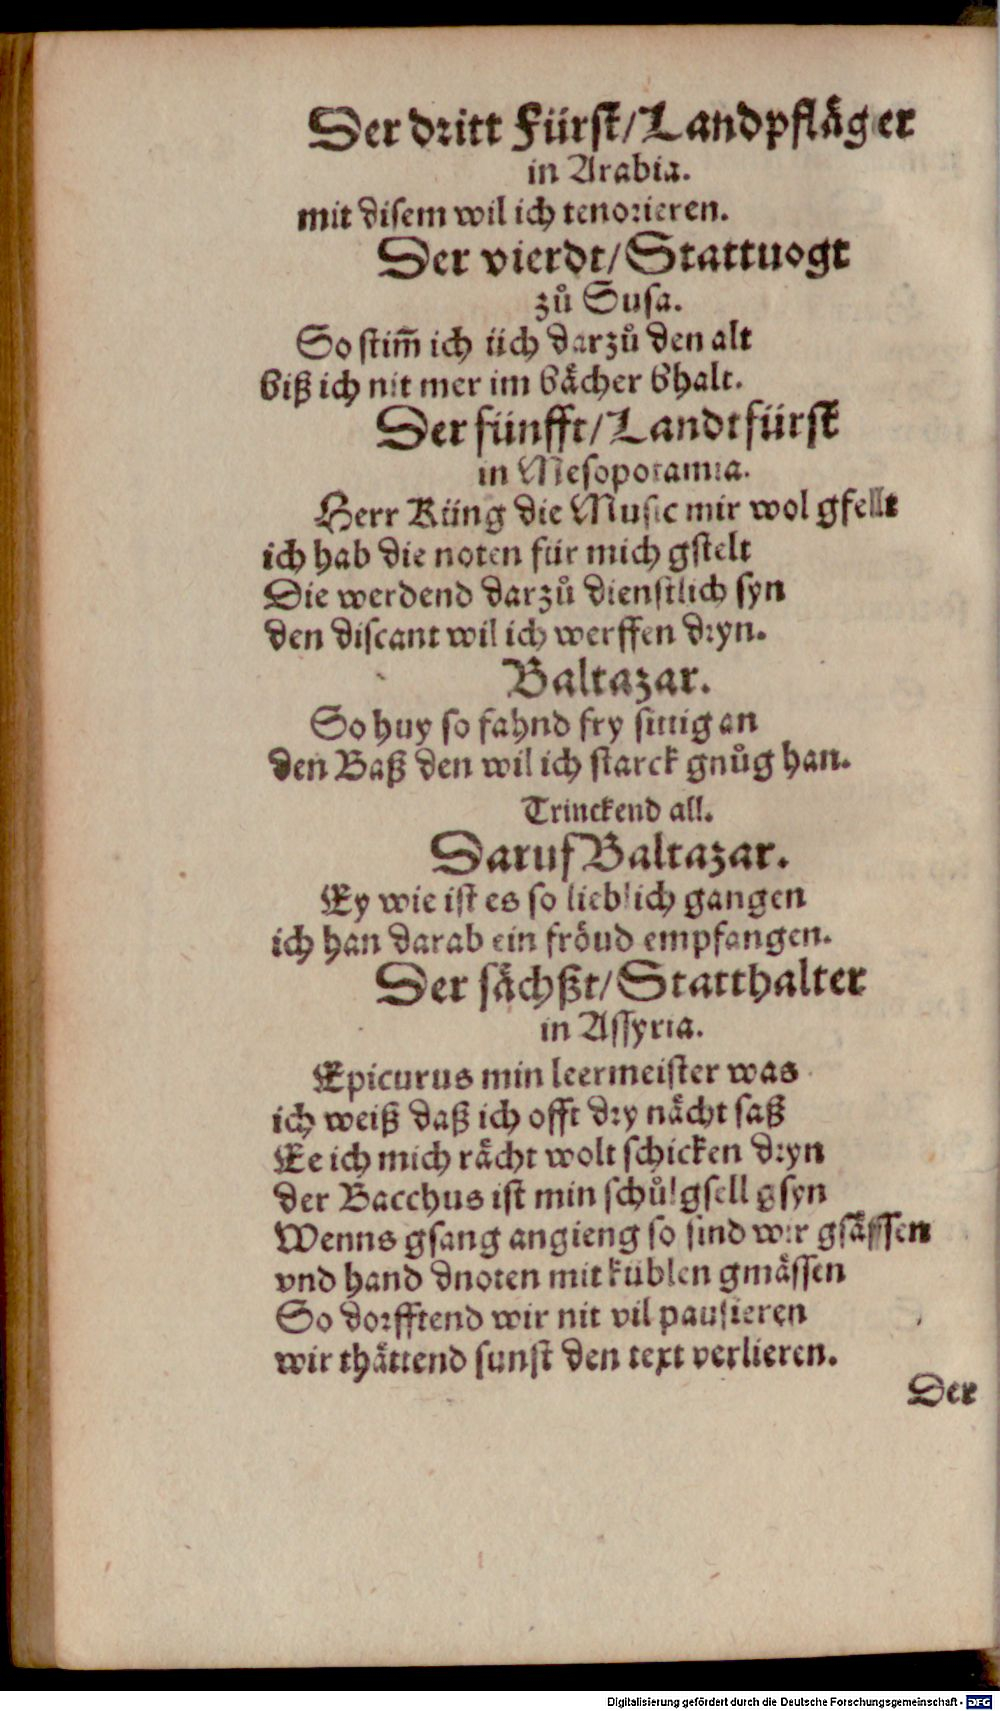 Der dritt Fürst/Landpfläger
in Arabia.
mit disem wil ich tenorieren.
Der vierdt/Stattuogt
zů Susa.
So stim̃ ich üch darzů den alt
biß ich nit mer im bächer bhalt.
Der fünfft/Landtfürst
in Mesopotamia.
Herr Küng die Music mir wol gfellt
ich hab die noten für mich gstelt
Die werdend darzů dienstlich syn
den discant wil ich werffen dryn.
Baltazar.
So huy so fahnd fry sittig an
den Baß den wil ich starck gnůg han.
Trinckend all.
Daruf Baltazar.
Ey wie ist es so lieblich gangen
ich han darab ein fröud empfangen.
Der sächßt/Statthalter
in Assyria.
Epicurus min leermeister was
ich weiß daß ich offt dry nächt saß
Ee ich mich rächt wolt schicken dryn
der Bacchus ist min schůlgsell gsyn
Wenns gsang angieng so sind wir gsässen
vnd hand dnoten mit küblen gmässen
So dorfftend wir nit vil pausieren
wir thättend sunst den text verlieren.
Der
Digitalisierung gefördert durch die Deutsche Forschungsgemeinschaft - DFG